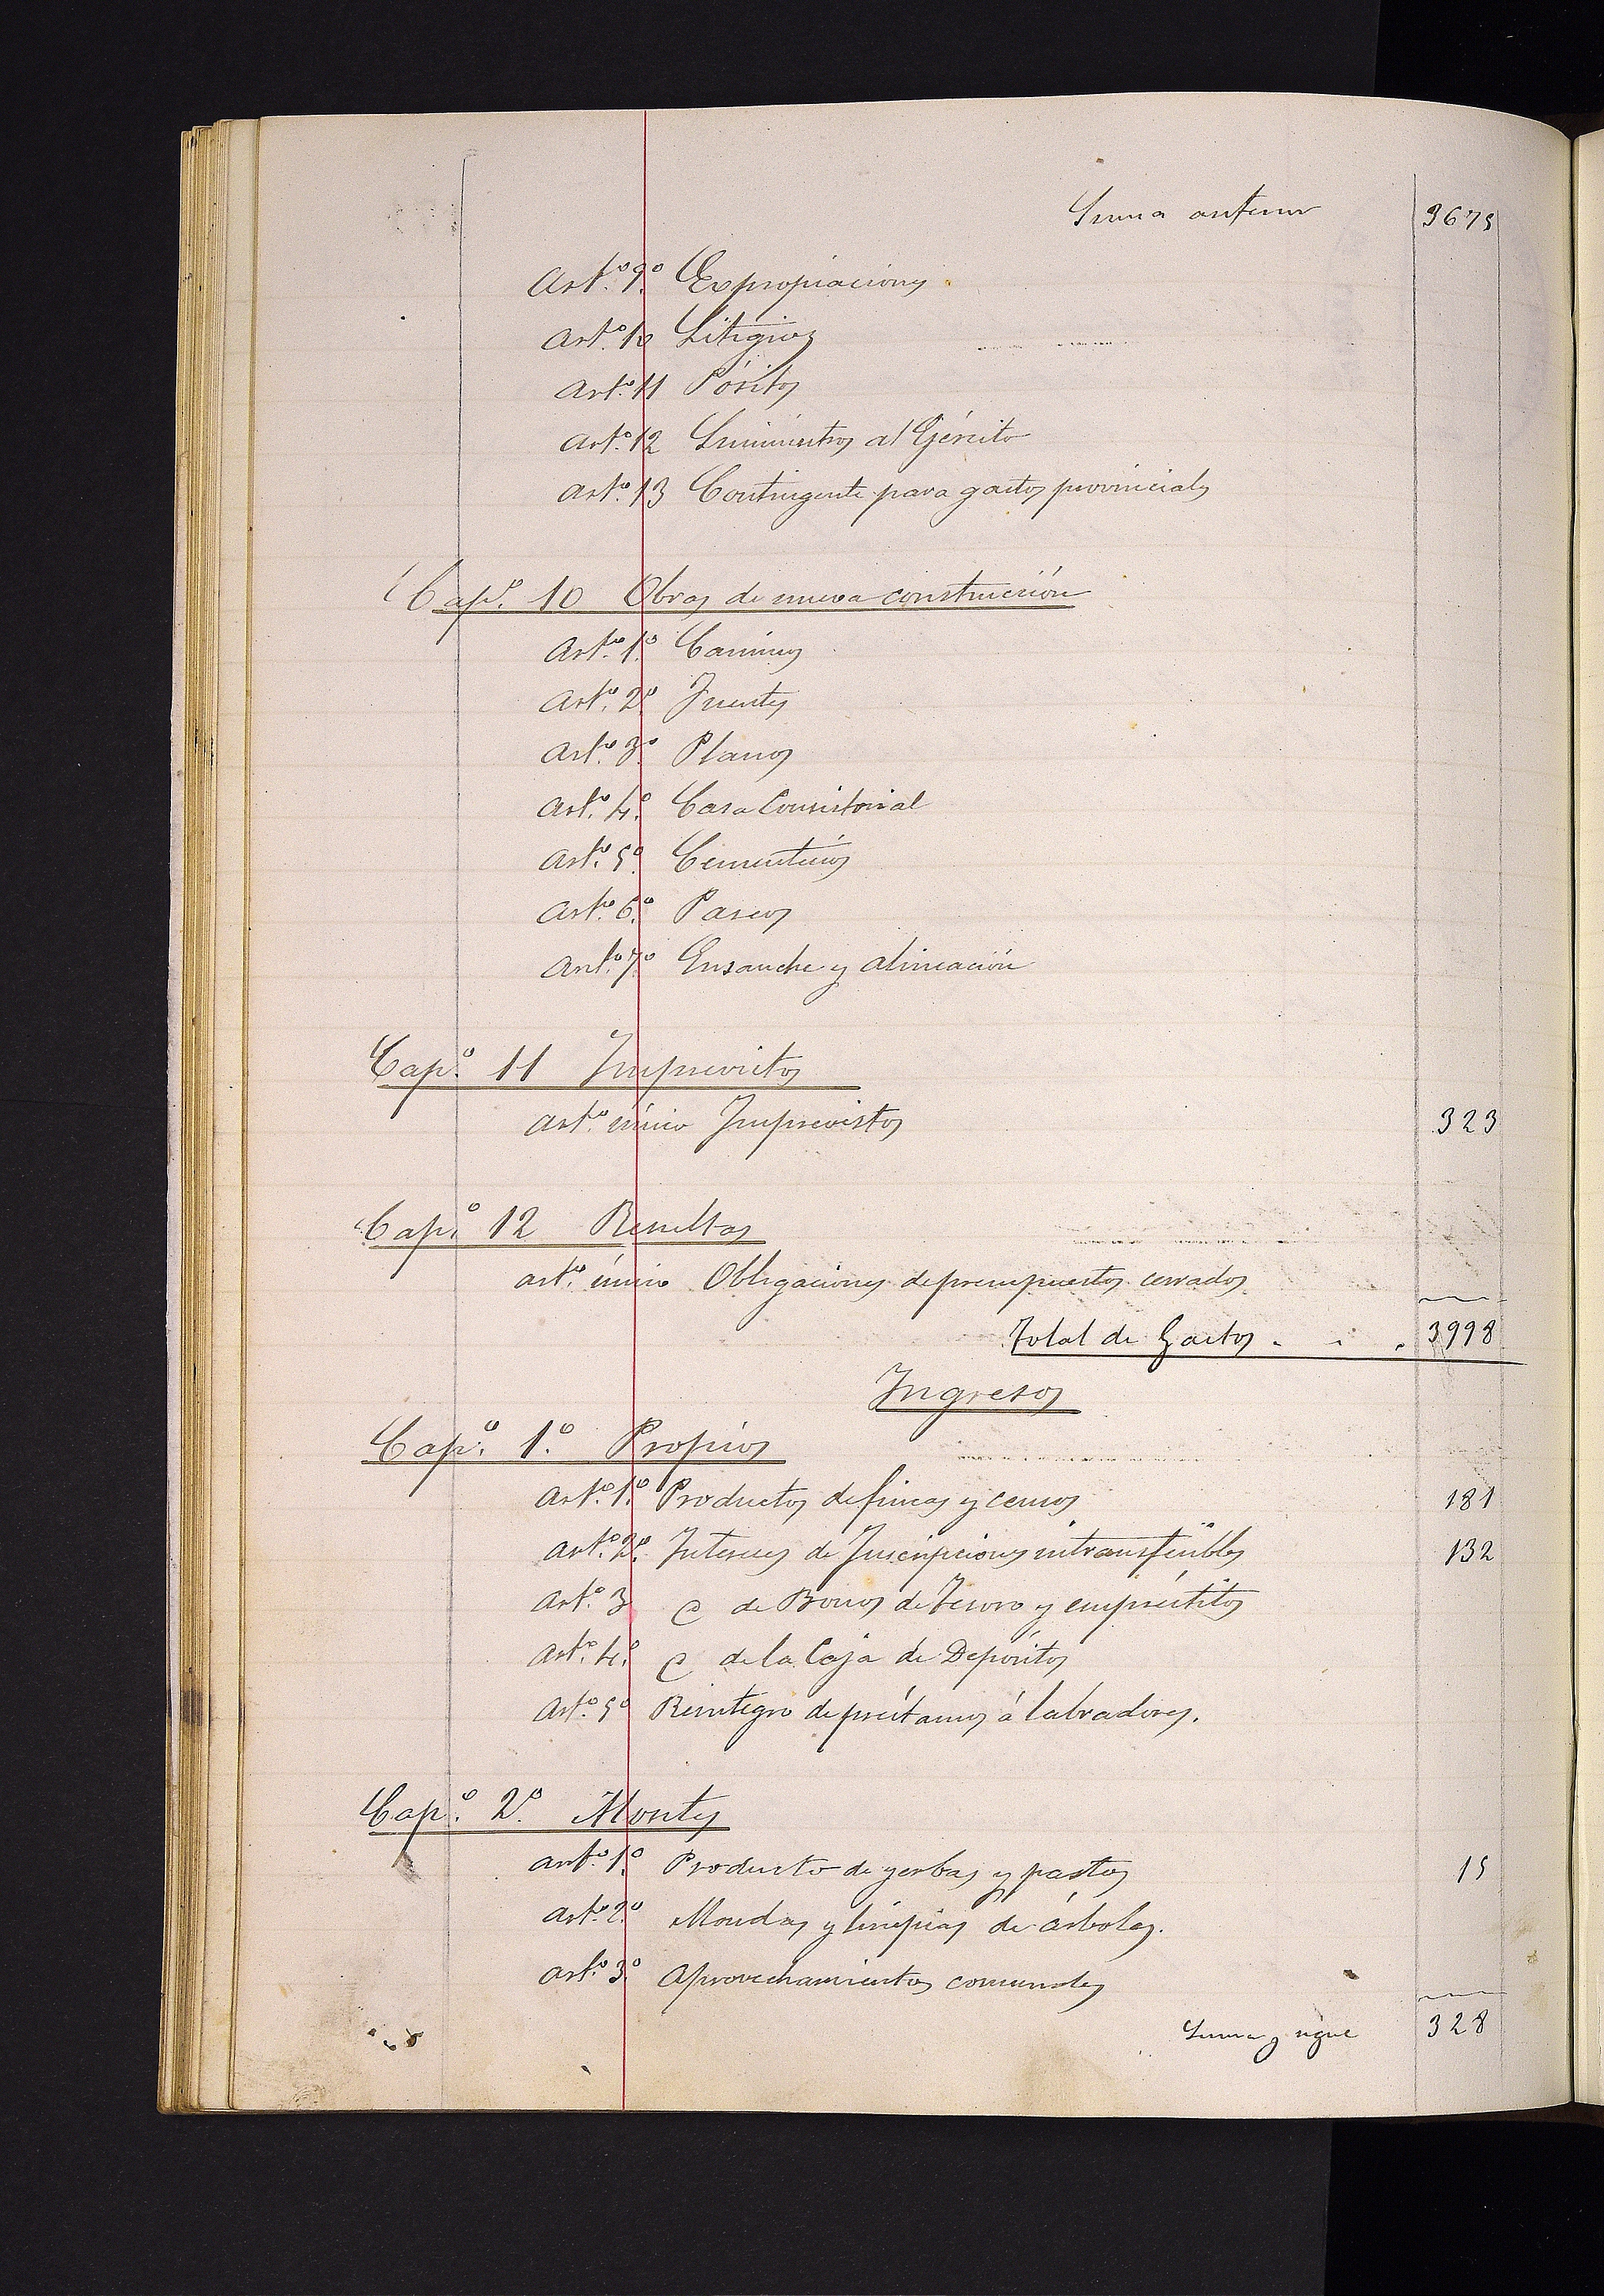 Suma anterior 3675
Art.º 9.º Expropiaciones
Art.º 10 Litigios
Art.º 11 Pósitos
Art.º 12 Suministros al Ejército
Art.º 13 Contingente para gastos provinciales
Cap.º 10 Obras de nueva construcción
Art.º 1.º Caminos
Art.º 2.º Fuentes
Art.º 3.º Planos
Art.º 4.º Casa Consistorial
Art.º 5.º Cementerios
Art.º 6.º Paseos
Art.º 7.º Ensanche y alineación
Cap.º 11 Imprevistos
Art.º único Imprevistos 323
Cap.º 12 Resultas
art.º único Obligaciones de presupuestos cerrados
Total de Gastos . . . 3998
Ingresos
Cap.º 1.º Propios
Art.º 1.º Productos de fincas y censos 181
Art.º 2.º Intereses de Inscripciones intransferibles 132
Art.º 3 @ de Bonos de Tesoro y empréstitos
Art.º 4.º @ de la Caja de Depósitos
Art.º 5.º Reintegro de préstamos á labradores.
Cap.º 2.º Montes
art.º 1.º Producto de yerbas y pastos 15
Art.º 2.º Mondas y limpias de árboles.
Art.º 3.º Aprovechamientos comunales
Suma y sigue 328